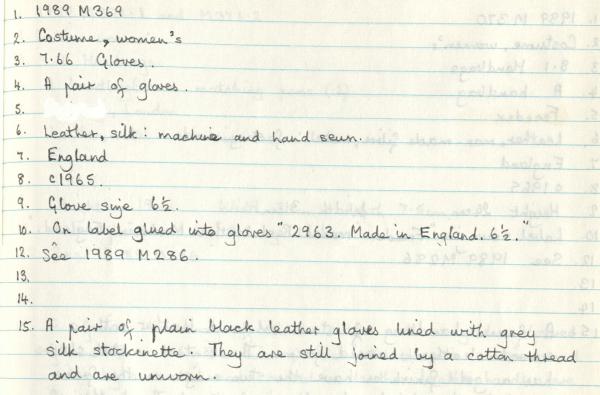 1. 1989 M369
2. Costume, women's
3. 7.66 Gloves.
4. A pair of gloves.
5.
6. Leather, silk: machine and hand sewn.
7. England
8. c1965.
9. Glove size 6½.
10. On label glued into gloves "2963. Made in England. 6½."
12. See 1989 M286.
13.
14.
15. A pair of plain black leather gloves lined with grey
silk stockinette. They are still joined by a cotton thread
and are unworn.